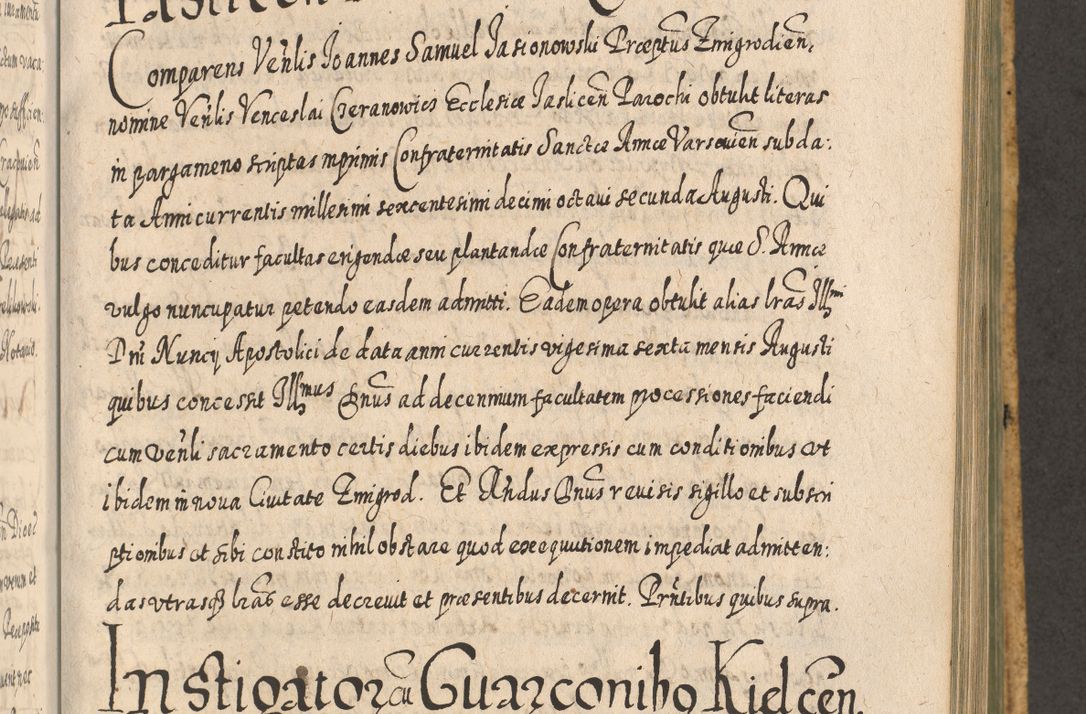 Comparens Ven̄lis Joannes Samuel Jasionowski Præptūs Zmigrodien̄,
nomine Ven̄lis Venceslai Czeranowicz Ecclesiæ Jaslicen̄ Parochi obtulit literas
in pargameno scriptas inprimis Confraternitatis Sanctæ Annæ Varsavien̄ sub da:
ta Anni currentis millesimi sexcentesimi decimi octavi secunda Augusti. Qui
bus conceditur facultas erigendæ seu plantandæ Confraternitatis quæ S. Annæ
vulgo nuncupatur petendo easdem admitti. Eadem opera obtulit alias lrās Jllmi
Dn̄i Nuncij Apostolici de data anni currentis vigesima sexta mensis Augusti
quibus concessit Jllmus Dn̄us ad decennium facultatem processiones faciendi
cum Ven̄li sacramento certis diebus ibidem expressis cum conditionibus ut
ibidem in nova Civitate Zmigrod. Et Rn̄dus Dn̄us revisis sigillo et subscri
ptionibus et sibi constito nihil obstare quod exequutionem impediat admitten:
das utrasqȝ lrās esse decrevit et præsentibus decernit. Prn̄tibus quibus supra.
Instigator cū Guarconibo Kielcen̄.